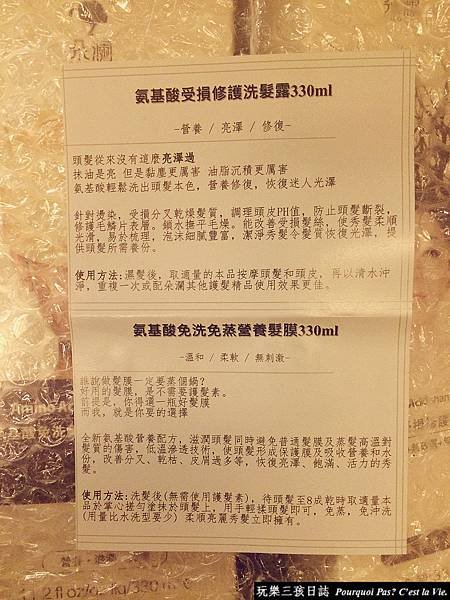 朵澜
氨基酸受損修護洗髮露330ml
-營養 / 亮澤 / 修復-
頭髮從來沒有這麼亮澤過
抹油是亮 但是黏塵更厲害 油脂沉積更厲害
氨基酸輕鬆洗出頭髮本色，營養修復，恢復迷人光澤
針對燙染，受損分叉乾燥髮質，調理頭皮PH值，防止頭髮斷裂，
修護毛鱗片表層。鎖水撫平毛燥。能改善受損髮絲，使秀髮柔順
光滑，易於梳理，泡沫細膩豐富，潔淨秀髮令髮質恢復光澤，提
供頭髮所需養份。
使用方法:濕髮後，取適量的本品按摩頭髮和頭皮，再以清水沖
淨，重複一次或配朵瀾其他護髮精品使用效果更佳。
氨基酸免洗免蒸營養髮膜330ml
-溫和 / 柔軟 / 無刺激-
誰說做髮膜一定要蒸個鍋？
好用的髮膜，是不需要護髮素。
前提是，你得選一瓶好髮膜
而我，就是你要的選擇
全新氨基酸營養配方，滋潤頭髮同時避免普通髮膜及蒸髮高溫對
髮質的傷害，低溫滲透技術，使頭髮形成保護膜及吸收營養和水
份，改善分叉、乾枯、皮屑過多等，恢復亮澤、飽滿、活力的秀
髮。
使用方法:洗髮後(無需使用護髮素)，待頭髮至8成乾時取適量本
品於掌心搓勻塗抹於頭髮上，用手輕揉頭髮即可，免蒸，免沖洗
(用量比水洗型要少) 柔順亮麗秀髮立即擁有。
Amino Ac
營養·滋潤
11.2 fl oz/
330 m
玩樂三孩日誌 Pourquoi Pas? C'est la Vie.